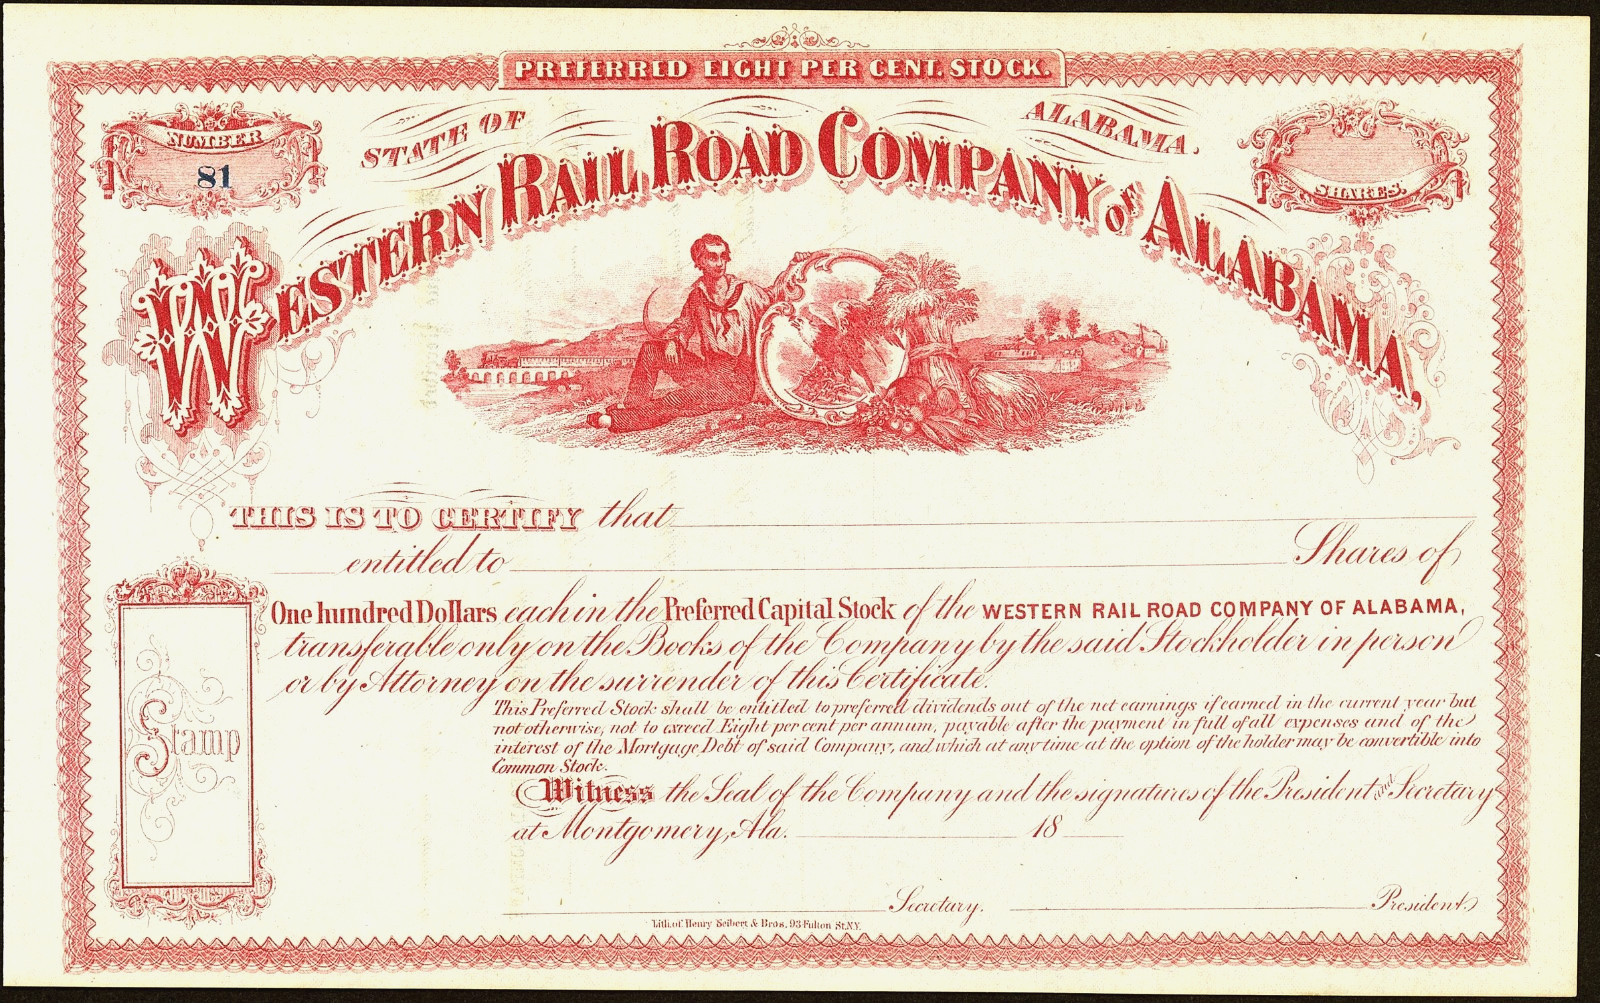 PREFERRED EIGHT PER CENT. STOCK.
STATE OF ALABAMA.
NUMBER
81
SHARES.
WESTERN RAIL ROAD COMPANY OF ALABAMA,
THIS IS TO CERTIFY that
entitled to Shares of
One hundred Dollars each in the Preferred Capital Stock of the WESTERN RAIL ROAD COMPANY OF ALABAMA,
transferable only on the Books of the Company by the said Stockholder in person
or by Attorney on the surrender of this Certificate.
This Preferred Stock shall be entitled to preferred dividends out of the net earnings if earned in the current year but
not otherwise, not to exceed Eight per cent per annum, payable after the payment in full of all expenses and of the
interest of the Mortgage Debt of said Company, and which at any time at the option of the holder may be convertible into
Common Stock.
Stamp
Witness the Seal of the Company and the signatures of the President and Secretary
at Montgomery, Ala. 18
Secretary. President
Lith. of Henry Seibert & Bros, 93 Fulton St. N.Y.